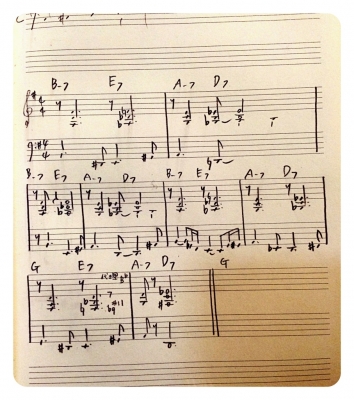 B-7 E7 A-7 D7
4 4
4 4
B-7 E7 A-7 D7 B-7 E7 A-7 D7
G E7 A-7 D7 G